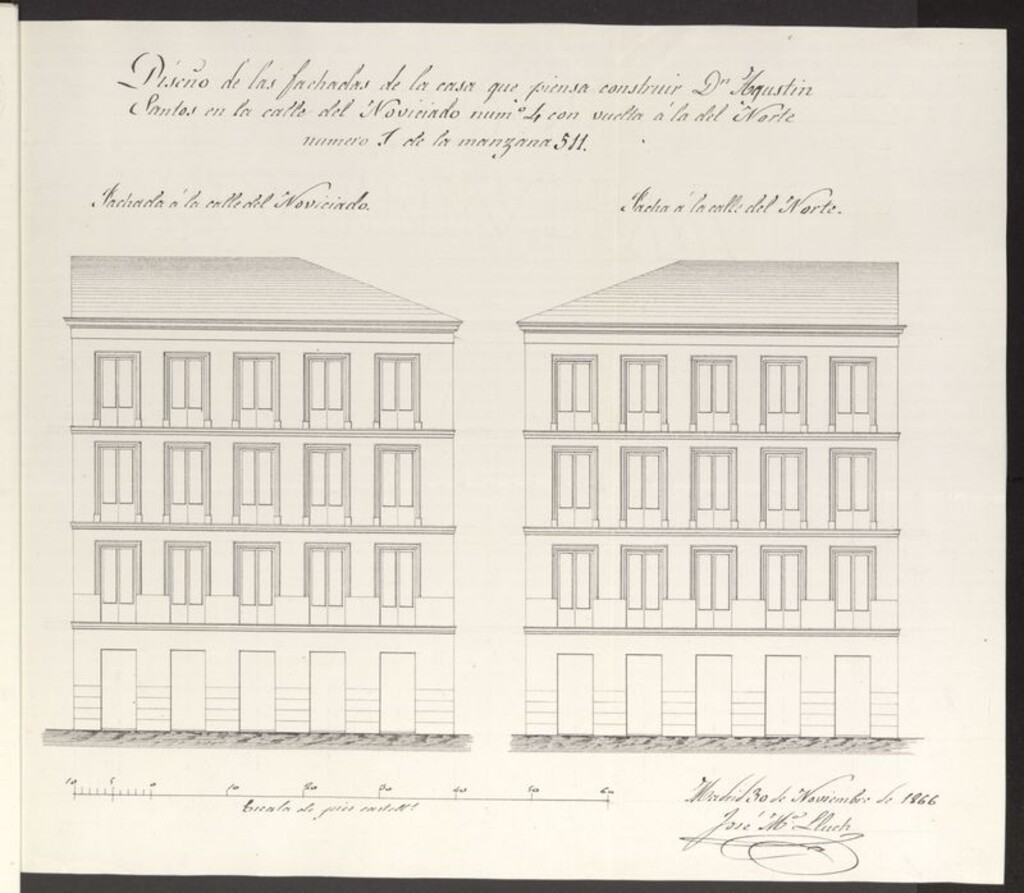 Diseño de las fachadas de la casa que piensa construir Dn Agustin
Santos en la calle del Noviciado numo 4 con vuelta á la del Norte
numero 1 de la manzana 511.
Fachada á la calle del Noviciado.
Facha á la calle del Norte.
10 5 0 10 20 30 40 50 60
Escala de pies castells
Madrid 30 de Noviembre de 1866
José Ma Lluch